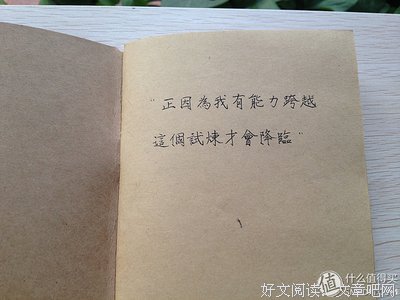 "正因為我有能力跨越
這個試煉才會降臨"
值 什么值得买
好文阅读 文章吧网